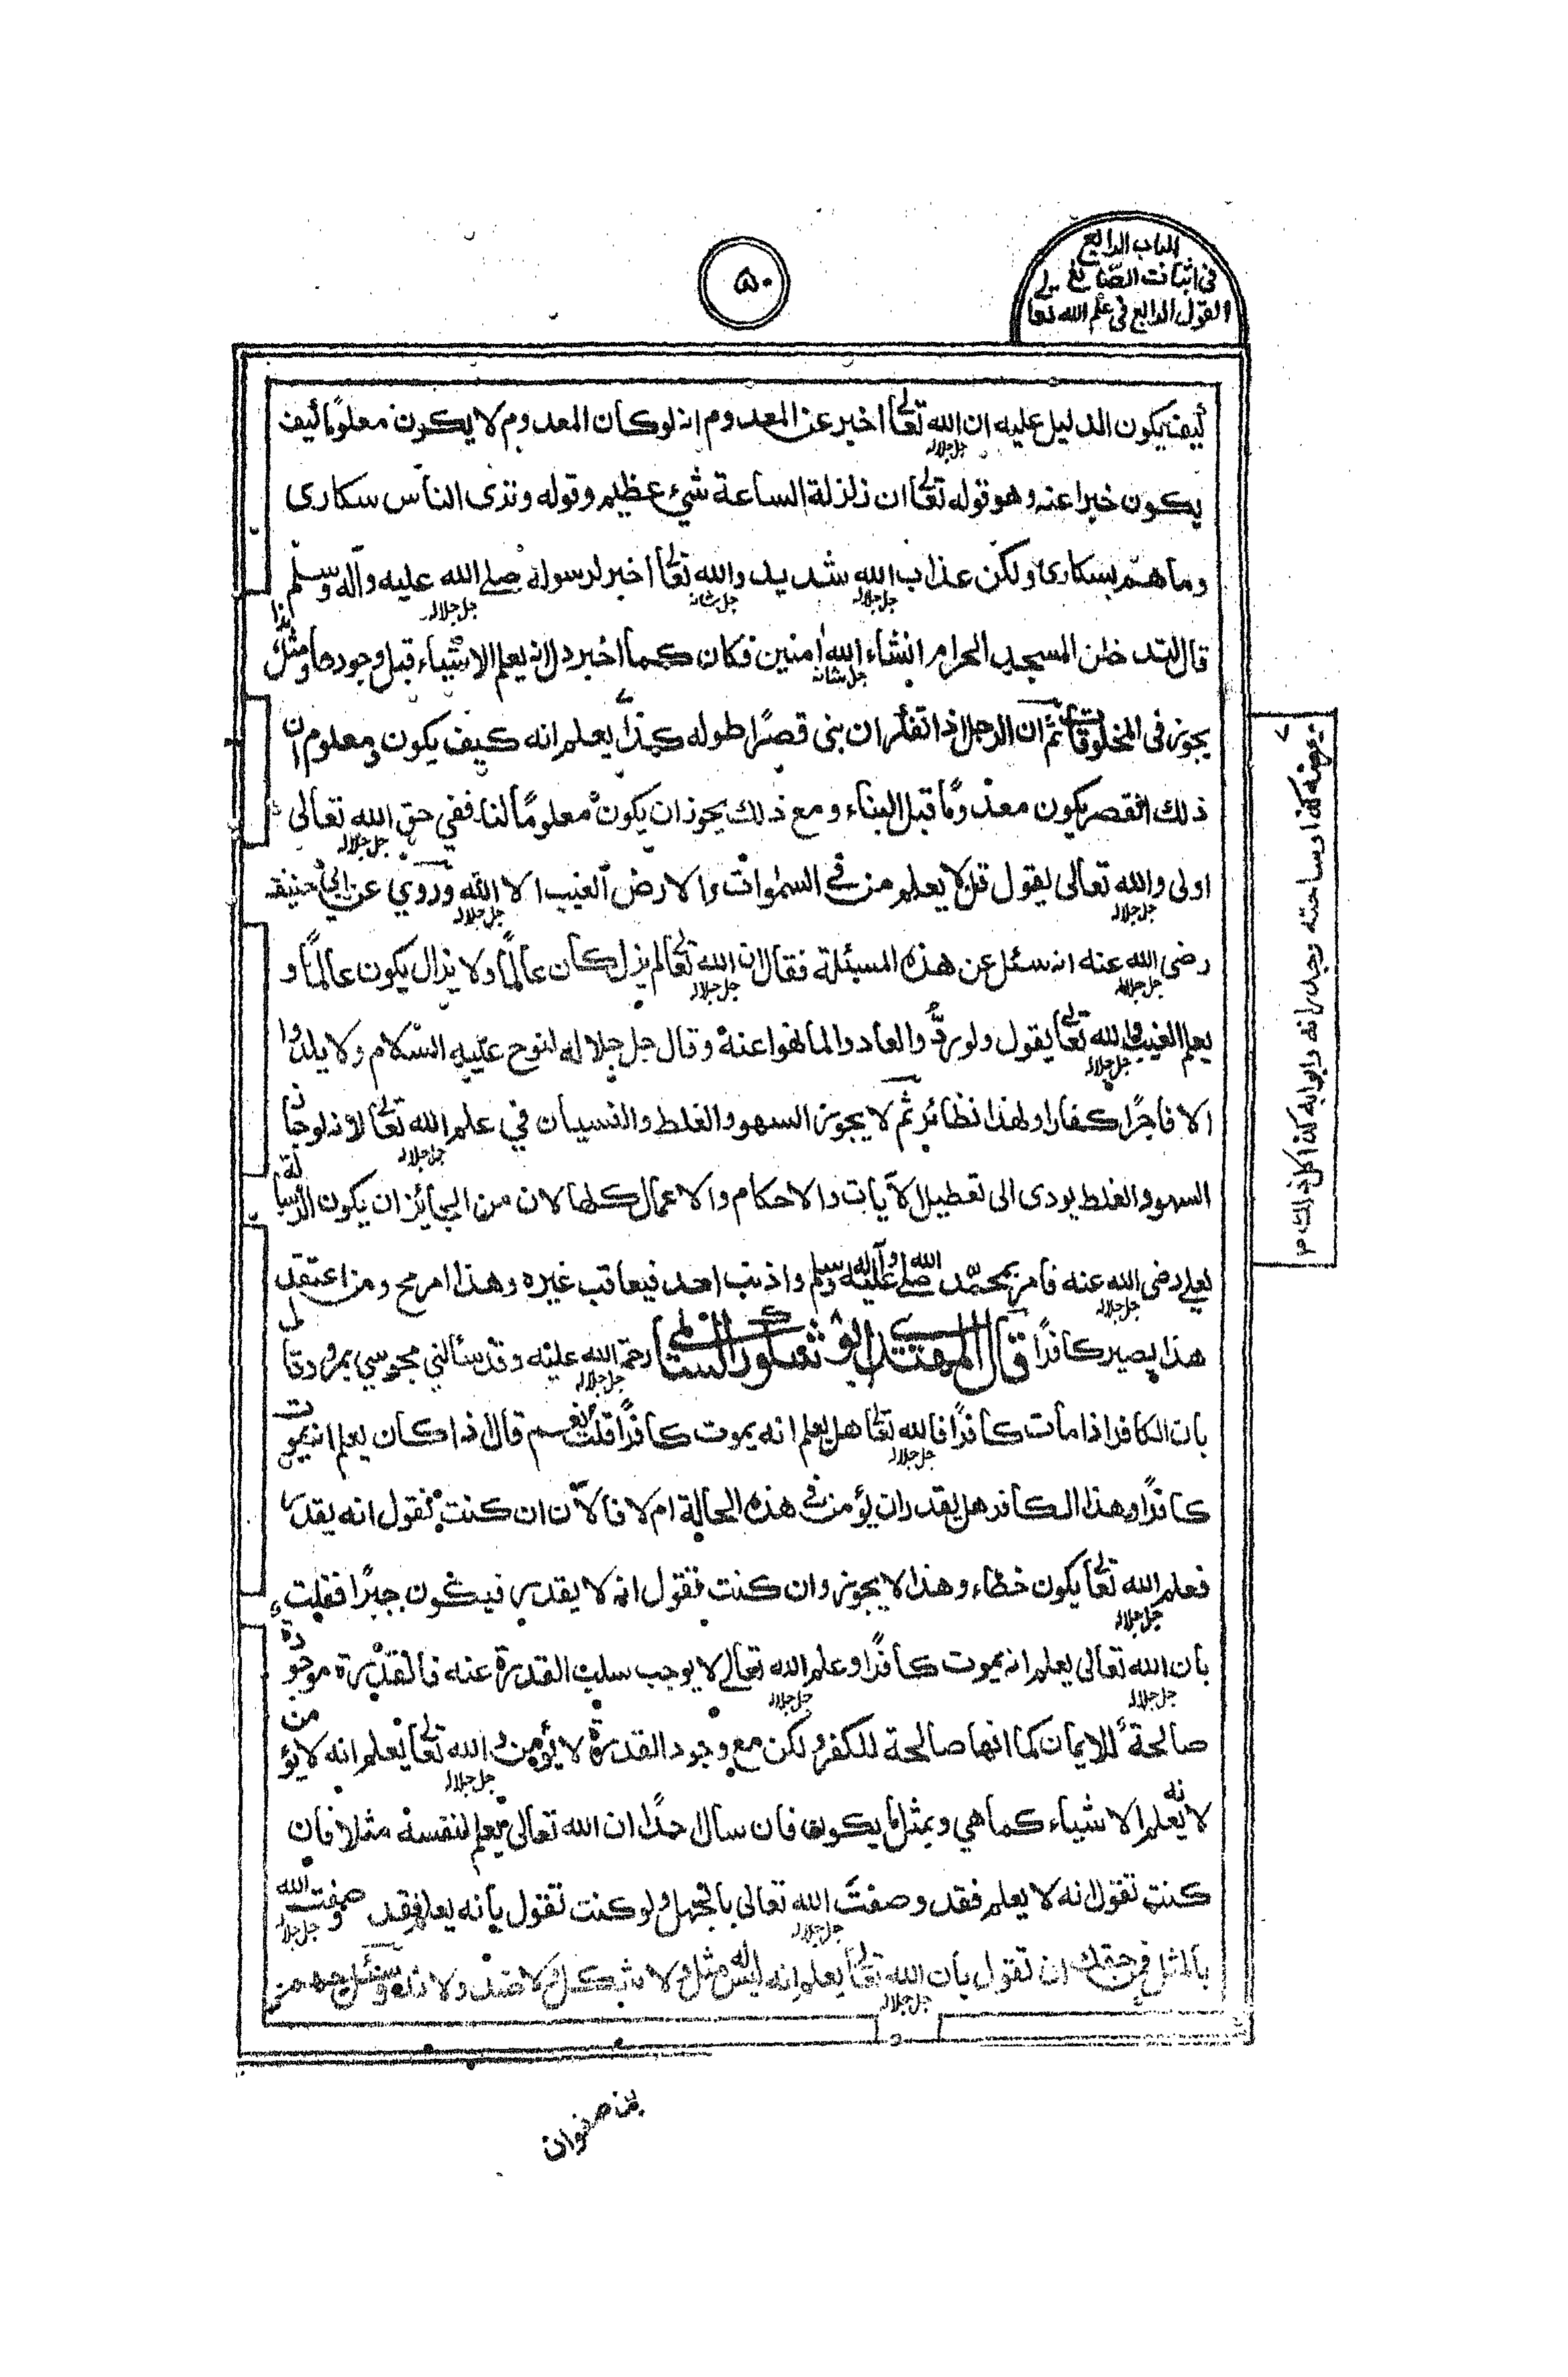 الباب الرابع
في اثبات الصانع
القول الرابع في علم الله تعالى
٥٠
كيف يكون الدليل عليه ان الله تعالى اخبر عن المعدوم انه لو كان المعدوم لا يكون معلوما كيف
يكون خبرا عنه وهو قوله تعالى ان زلزلة الساعة شيء عظيم وقوله وترى الناس سكارى
وما هم بسكارى ولكن عذاب الله شديد والله تعالى اخبر لرسوله صلى الله عليه وآله وسلم
قال لتدخلن المسجد الحرام انشاء الله امنين فكان كما اخبر دل انه يعلم الاشياء قبل وجودها ومثل هذا
يجوز في المخلوقات ثم ان الرجل اذا تفكر ان بنى قصرا طوله كذا يعلم انه كيف يكون ومعلوم ان
ذلك القصر يكون معدوما قبل البناء ومع ذلك يجوز ان يكون معلوما لنا ففي حق الله تعالى
اولى والله تعالى يقول قل لا يعلم من في السموات والارض الغيب الا الله وروي عن ابي حنيفة
رضى الله عنه انه سئل عن هذه المسئلة فقال ان الله تعالى لم يزل كان عالما ولا يزال يكون عالما و
يعلم الغيب والله تعالى يقول ولو ردوا لعادوا لما نهوا عنه وقال جل جلاله لنوح عليه السلام ولا يلدوا
الا فاجرا كفارا ولهذا نظائر ثم لا يجوز السهو والغلط والنسيان في علم الله تعالى لانه لو جاز
السهو والغلط يودى الى تعطيل الآيات والاحكام والاعمال كلها لان من الجائز ان يكون الرسالة
لعلي رضى الله عنه فامر بمحمد صلى الله عليه وآله وسلم واذنب احد فيعاقب غيره وهذا امر مح ومن اعتقد
هذا يصير كافرا قال المهتدى ابو شكور السالمي رحمة الله عليه وقد سألني مجوسي بمرو وقال
بان الكافر اذا مات كافرا فالله تعالى هل يعلم انه يموت كافرا قلت نعم قال اذا كان يعلم انه يموت
كافرا وهذا الكافر هل يقدر ان يؤمن في هذه الحالة ام لا فالآن ان كنت تقول انه يقدر
فعلم الله تعالى يكون خطاء وهذا لا يجوز وان كنت تقول انه لا يقدر فيكون جبرا فقلت
بان الله تعالى يعلم انه يموت كافرا وعلم الله تعالى لا يوجب سلب القدرة عنه فالقدرة موجودة
صالحة للايمان كما انها صالحة للكفر ولكن مع وجود القدرة لا يؤمن والله تعالى يعلم انه لا يؤمن
لانه يعلم الاشياء كما هي وبمثل ما يكون فان سال احدا ان الله تعالى يعلم لنفسه مثلا فان
كنت تقول انه لا يعلم فقد وصفت الله تعالى بالجهل ولو كنت تقول بأنه يعلم فقد وصفت الله
بالمثل فمن حقك ان تقول بان الله تعالى يعلم انه ليس له مثل ولا شكل ولا ضد ولا ند وسئل جهم من
بن صفوان